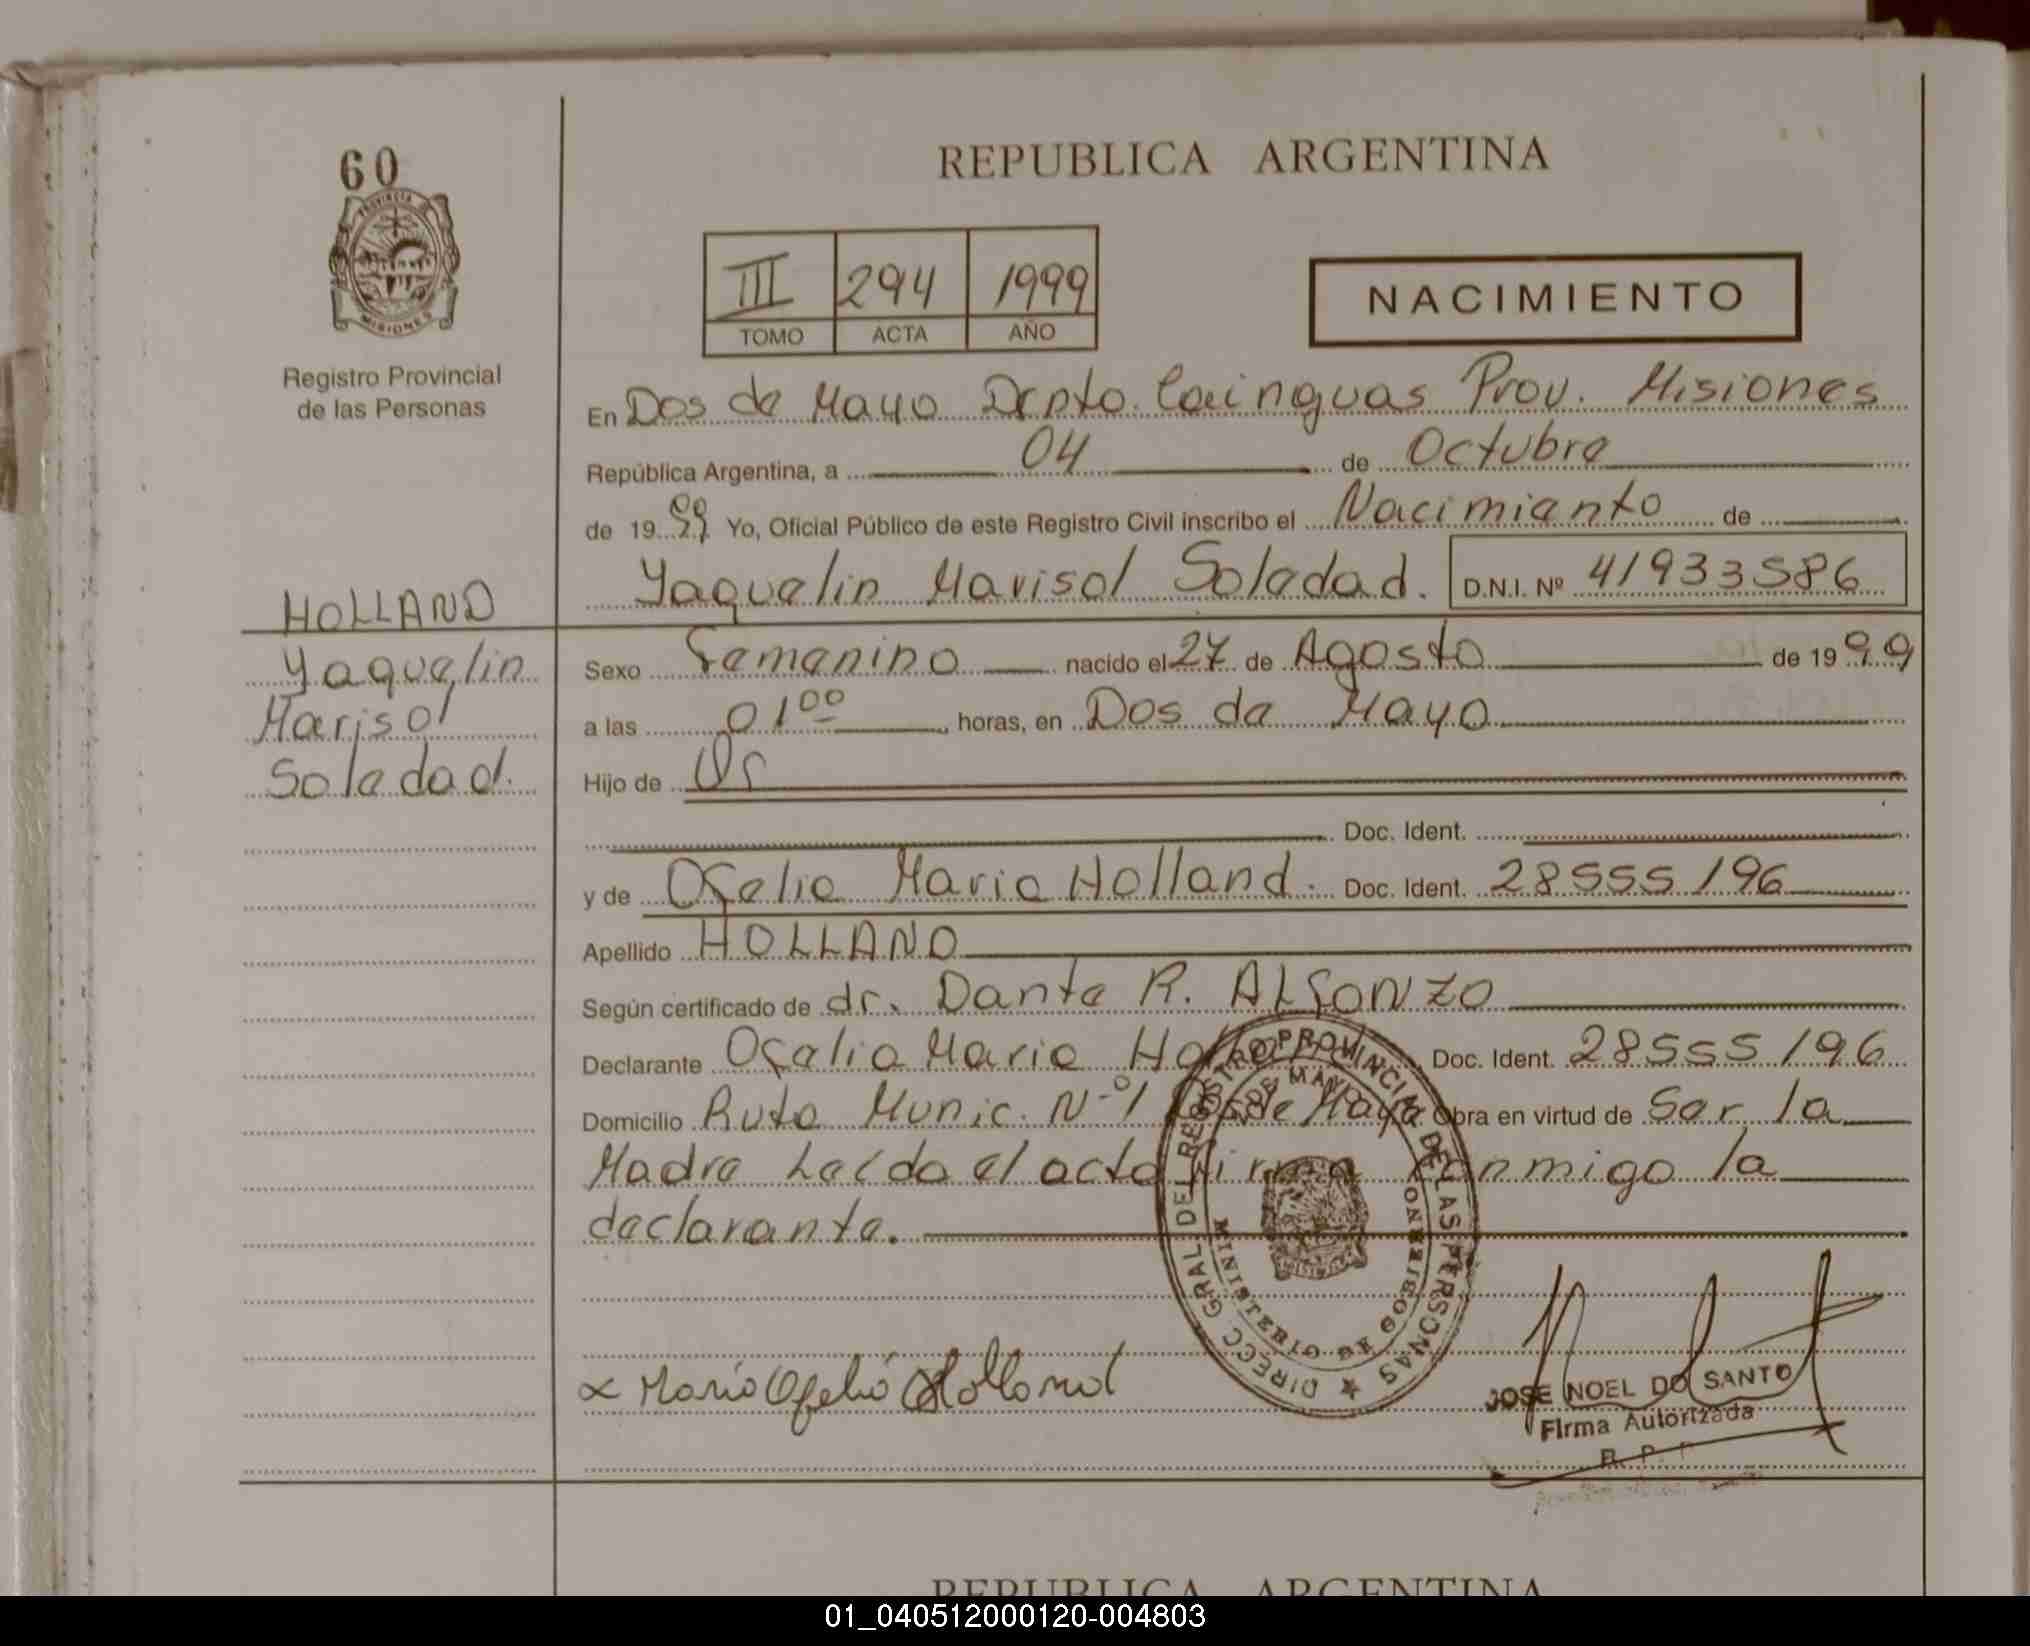 60
PROVINCIA DE
MISIONES
Registro Provincial
de las Personas
REPUBLICA ARGENTINA
III 294 1999
TOMO ACTA AÑO
NACIMIENTO
En Dos de Mayo Dcpto. Cainguas Prov. Misiones
República Argentina, a 04 de Octubre
de 1999 Yo, Oficial Público de este Registro Civil inscribo el Nacimiento de
Yaquelin Marisol Soledad. D.N.I. Nº 41933586
HOLLAND
Yaquelin
Marisol
Soledad.
Sexo Femenino nacido el 27 de Agosto de 1999
a las 01 00 horas, en Dos de Mayo
Hijo de
Doc. Ident.
y de Ofelia Maria Holland. Doc. Ident. 28555196
Apellido HOLLAND
Según certificado de dr. Dante R. ALFONZO
Declarante Ofelia Maria Holland Doc. Ident. 28555196
Domicilio Ruta Munic. Nº 1 Dos de Mayo Obra en virtud de Ser la
Madre Leída el acta firma conmigo la
declarante.
DIRECC GRAL DEL REGISTRO PROVINCIAL DE LAS PERSONAS
DOS DE MAYO
MINISTERIO DE GOBIERNO
MISIONES
x Maria Ofelia Holland
JOSE NOEL DO SANTO
Firma Autorizada
R. P. P.
REPUBLICA ARGENTINA
01_040512000120-004803